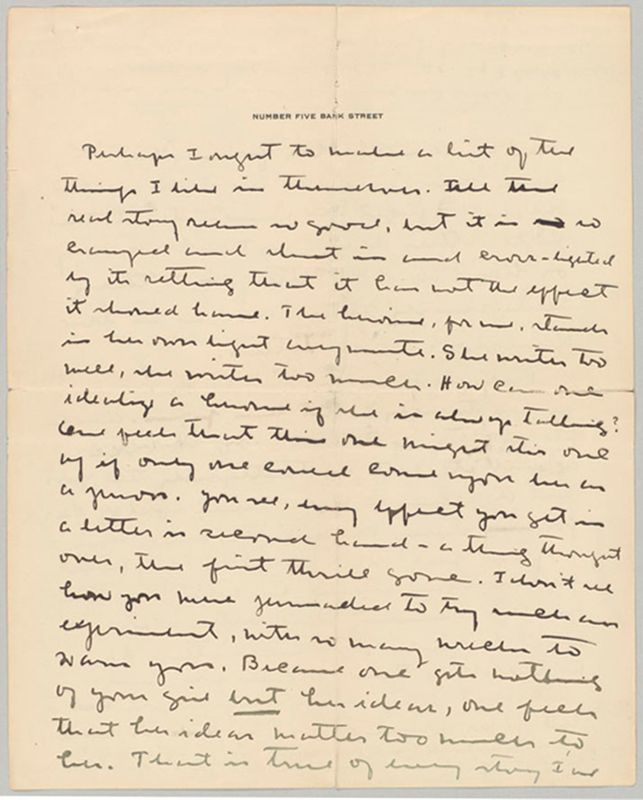 NUMBER FIVE BANK STREET
Perhaps I ought to make a list of the
things I like in themselves. All the
real story seems so good, but it is so
cramped and shut in and cross-lighted
by its setting that it has not the effect
it should have. The heroine, for me, stands
in her own light every minute. She writes too
well, she writes too much. How can one
idealize a heroine if she is always talking?
One feels that this one might stir one
up if only one could come upon her as
a person. You see, every effect you get in
a letter is second hand - a thing thought
over, the first thrill gone. I don't see
how you were persuaded to try such an
experiment, with so many wrecks to
warn you. Because one gets nothing
of your girl but her ideas, one feels
that her ideas matter too much to
her. That is true of every story I've